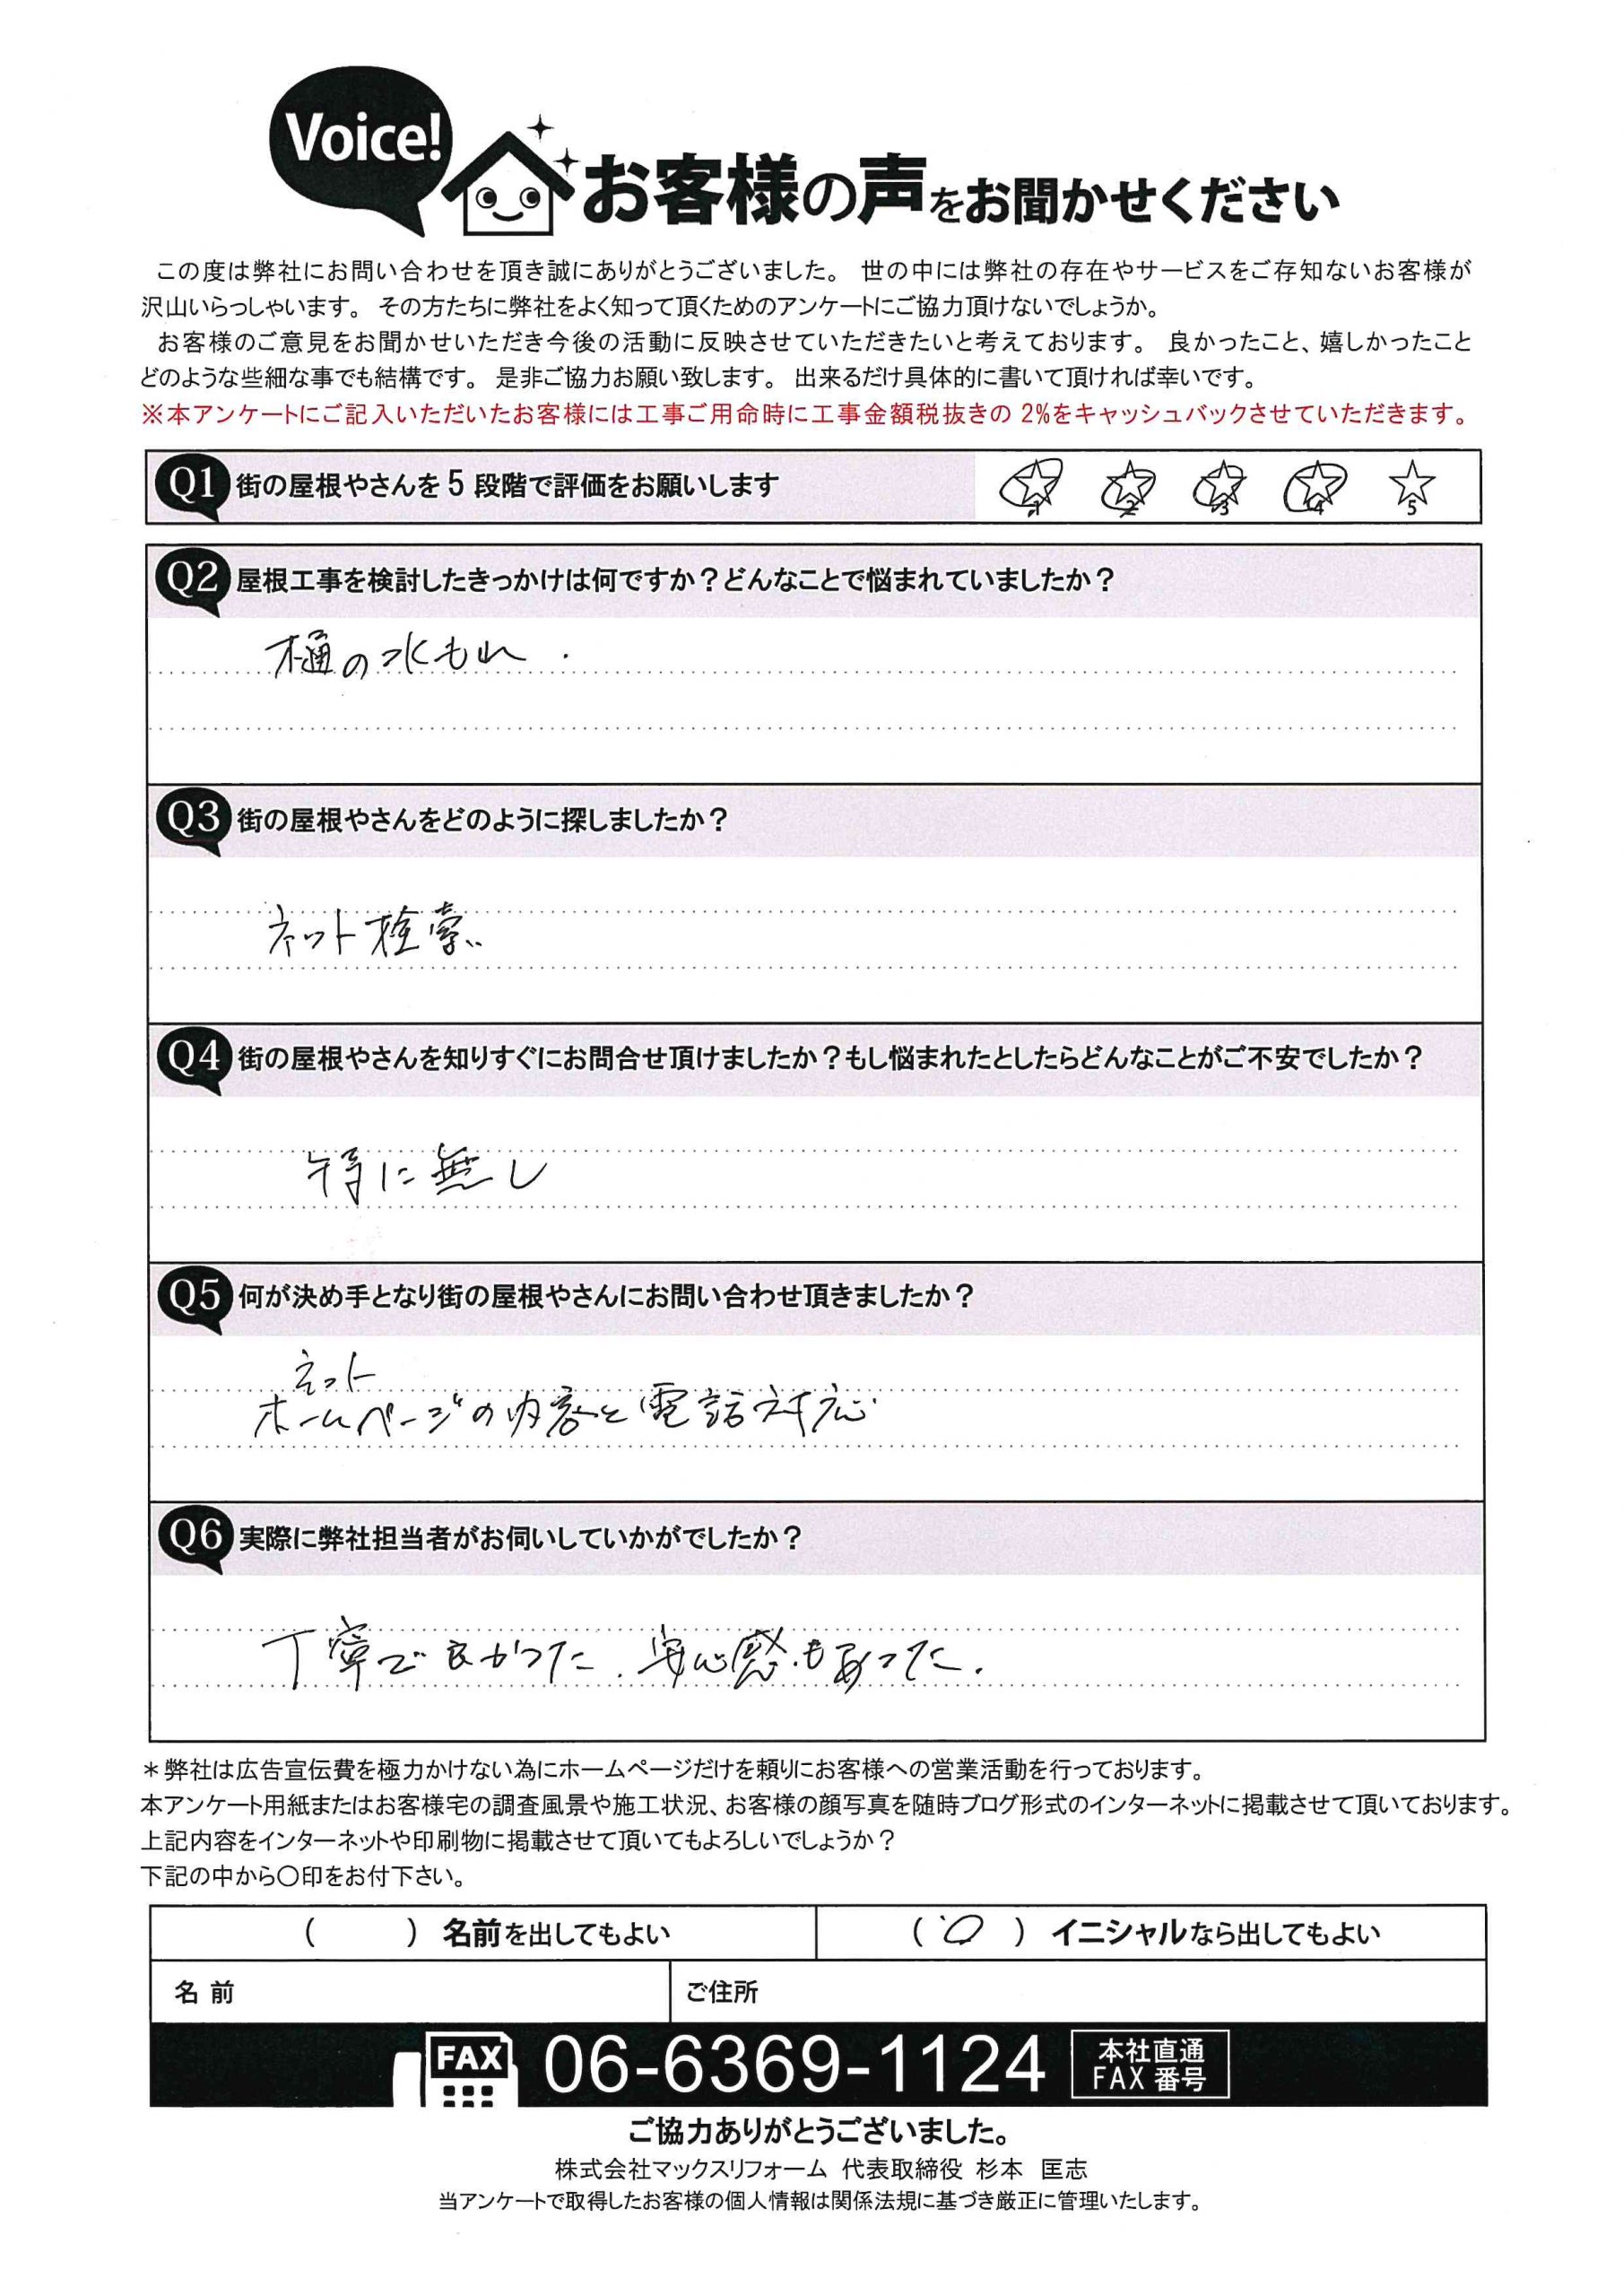 Voice!
お客様の声をお聞かせください
この度は弊社にお問い合わせを頂き誠にありがとうございました。 世の中には弊社の存在やサービスをご存知ないお客様が
沢山いらっしゃいます。 その方たちに弊社をよく知って頂くためのアンケートにご協力頂けないでしょうか。
お客様のご意見をお聞かせいただき今後の活動に反映させていただきたいと考えております。 良かったこと、嬉しかったこと
どのような些細な事でも結構です。 是非ご協力お願い致します。 出来るだけ具体的に書いて頂ければ幸いです。
※本アンケートにご記入いただいたお客様には工事ご用命時に工事金額税抜きの 2%をキャッシュバックさせていただきます。
Q1 街の屋根やさんを 5 段階で評価をお願いします ☆1 ☆2 ☆3 ☆4 ☆5
Q2 屋根工事を検討したきっかけは何ですか？どんなことで悩まれていましたか？
樋の水もれ.
Q3 街の屋根やさんをどのように探しましたか？
ネット検索
Q4 街の屋根やさんを知りすぐにお問合せ頂けましたか？もし悩まれたとしたらどんなことがご不安でしたか？
特に無し
Q5 何が決め手となり街の屋根やさんにお問い合わせ頂きましたか？
ネット
ホームページの内容と電話対応
Q6 実際に弊社担当者がお伺いしていかがでしたか？
丁寧で良かった. 安心感もあった.
＊弊社は広告宣伝費を極力かけない為にホームページだけを頼りにお客様への営業活動を行っております。
本アンケート用紙またはお客様宅の調査風景や施工状況、お客様の顔写真を随時ブログ形式のインターネットに掲載させて頂いております。
上記内容をインターネットや印刷物に掲載させて頂いてもよろしいでしょうか？
下記の中から〇印をお付下さい。
（　　）名前を出してもよい （○）イニシャルなら出してもよい
名 前 ご住所
FAX 06-6369-1124 本社直通
FAX 番号
ご協力ありがとうございました。
株式会社マックスリフォーム 代表取締役 杉本 匡志
当アンケートで取得したお客様の個人情報は関係法規に基づき厳正に管理いたします。